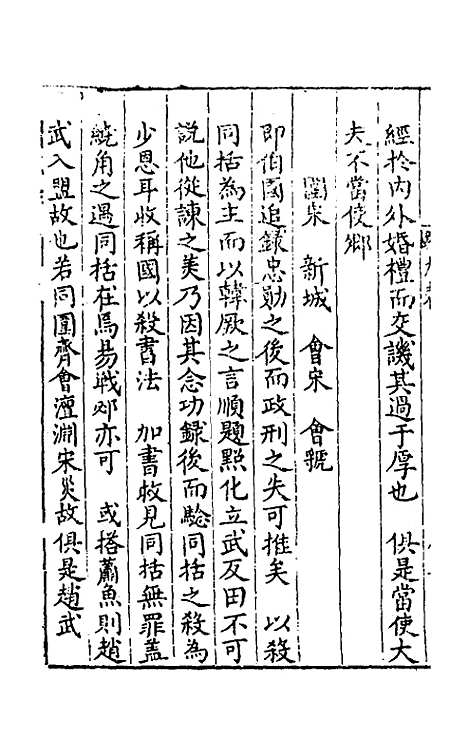 經於內外婚禮而交譏其過于厚也　俱是當使大
夫不當使卿
圍宋　新城　會宋　會虢
即伯國追錄忠勛之後而政刑之失可推矣　以殺
同括為主而以韓厥之言順題點化立武反田不可
說他從諫之美乃因其念功錄後而驗同括之殺為
少恩耳收稱國以殺書法　加書救見同括無罪蓋
鐃角之遇同括在焉昜戰邲亦可　或搭蕭魚則趙
武入盟故也若同圍齊會澶淵宋災故俱是趙武